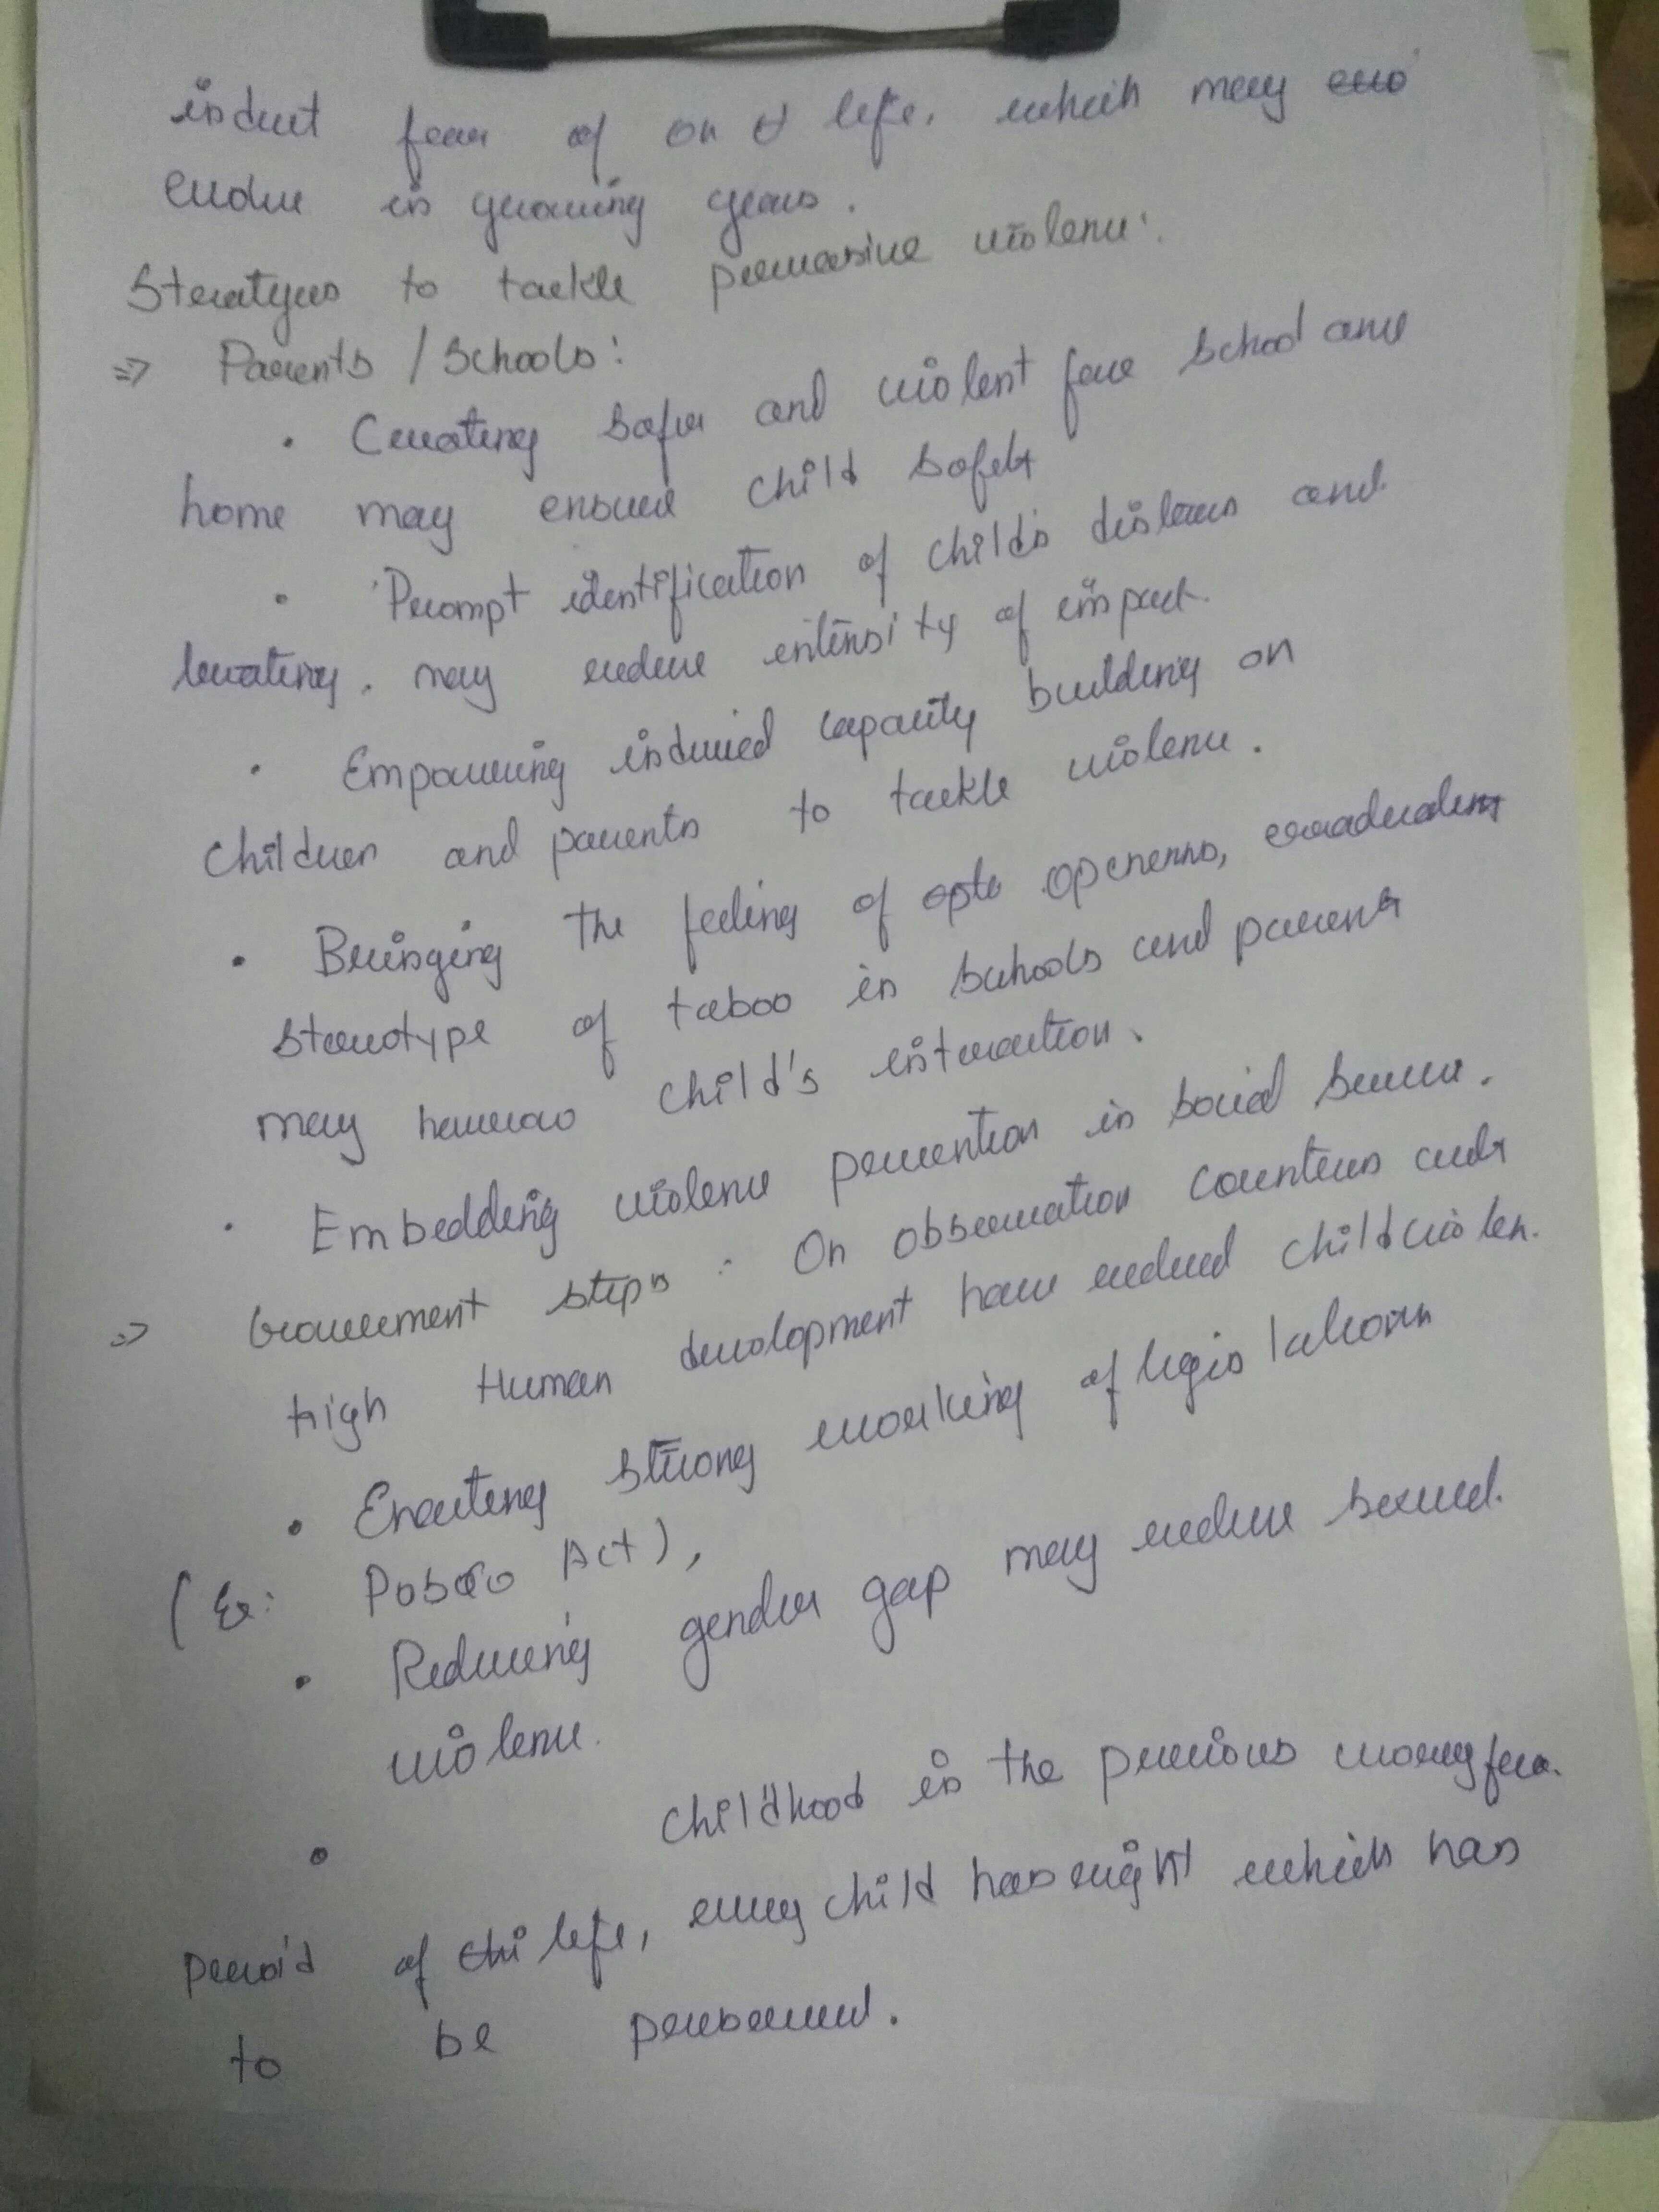 induct fear of on life, which may
endure in growing years.
Strategies to tackle pervasive violence:
⇒ Parents / Schools:
• Creating safer and violent free school and
home may ensure child safety
• Prompt identification of child's distress and
treating. may reduce intensity of impact.
• Empowering induced capacity building on
children and parents to tackle violence.
• Bringing the feeling of openness,
stereotype of taboo in schools and parents
may child's interaction.
• Embedding violence prevention in social service.
⇒ Government steps: On observation countries with
high Human development have reduced child violen.
• Enacting strong working of legislation
(Ex: Poscso Act),
• Reducing gender gap may reduce sexual.
violence.
• childhood is the precious
period of life, every child has right which has
to be preserved.